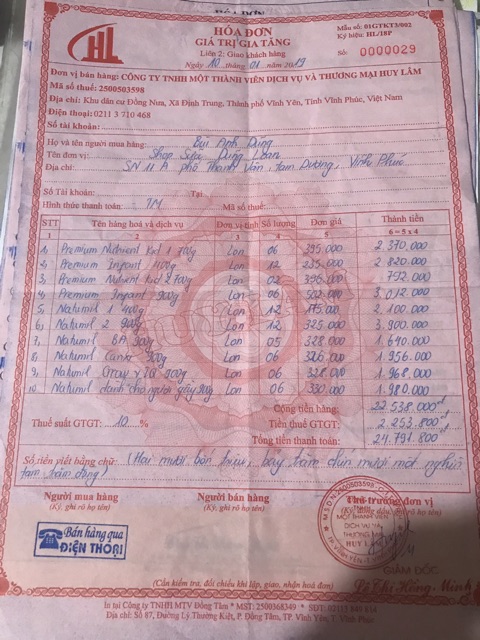 HL
HÓA ĐƠN
GIÁ TRỊ GIA TĂNG
Liên 2: Giao khách hàng
Ngày 10 tháng 01 năm 2019
Mẫu số: 01GTKT3/002
Ký hiệu: HL/18P
Số: 0000029
Đơn vị bán hàng: CÔNG TY TNHH MỘT THÀNH VIÊN DỊCH VỤ VÀ THƯƠNG MẠI HUY LÂM
Mã số thuế: 2500503598
Địa chỉ: Khu dân cư Đồng Nưa, Xã Định Trung, Thành phố Vĩnh Yên, Tỉnh Vĩnh Phúc, Việt Nam
Điện thoại: 0211 3 710 468
Số tài khoản:
Họ và tên người mua hàng: Bùi Anh Dũng
Tên đơn vị: Shop Sữa Dũng Loan
Địa chỉ: SN 11 A phố Thanh Vân, Tam Dương, Vĩnh Phúc
Số Tài khoản: Tại
Hình thức thanh toán: TM Mã số thuế:
STT Tên hàng hoá và dịch vụ Đơn vị tính Số lượng Đơn giá Thành tiền
1 2 3 4 5 6 = 5 x 4
1 Premium Nutrient Kid 1 700g Lon 06 395.000 2.370.000
2 Premium Infant 400g Lon 12 235.000 2.820.000
3 Premium Nutrient Kid 2 700g Lon 02 396.000 792.000
4 Premium Infant 900g Lon 06 502.000 3.012.000
5 Natumil 1 400g Lon 12 175.000 2.100.000
6 Natumil 2 900g Lon 12 325.000 3.900.000
7 Natumil BA 900g Lon 05 328.000 1.640.000
8 Natumil Canxi 900g Lon 06 326.000 1.956.000
9 Natumil 900g Lon 06 328.000 1.968.000
10 Natumil dành cho người gầy 900g Lon 06 330.000 1.980.000
Cộng tiền hàng: 22.538.000đ
Thuế suất GTGT: 10 % Tiền thuế GTGT: 2.253.800đ
Tổng tiền thanh toán: 24.791.800đ
Số tiền viết bằng chữ: (Hai mươi bốn triệu, bảy trăm chín mươi mốt nghìn
tám trăm đồng)
Người mua hàng Người bán hàng Thủ trưởng đơn vị
(Ký, ghi rõ họ tên) (Ký, ghi rõ họ tên)
Bán hàng qua
ĐIỆN THOẠI
GIÁM ĐỐC
Lê Thị Hồng Minh
(Cần kiểm tra, đối chiếu khi lập, giao, nhận hoá đơn)
In tại Công ty TNHH MTV Đồng Tâm * MST: 2500368349 * SĐT:
Địa chỉ: Số 87, Đường Lý Thường Kiệt, P. Đồng Tâm, TP. Vĩnh Yên, T. Vĩnh Phúc